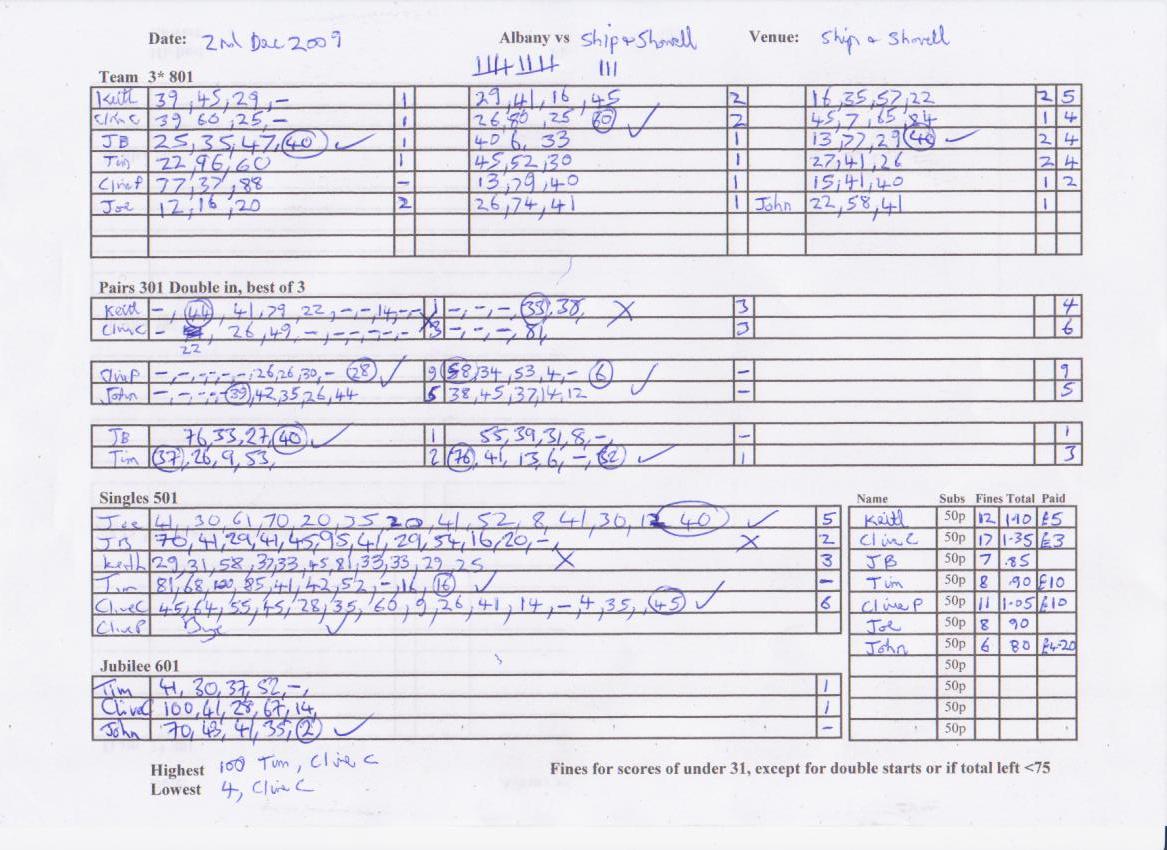 Date: 2nd Dec 2009 Albany vs Ship & Shovell Venue: Ship & Shovell
Team 3* 801
Keith 39, 45, 29, - 1 29, 41, 16, 45 2 16, 35, 57, 22 2 5
Clive C 39 60, 25, - 1 26, 80, 25 60 ✓ 2 45, 7, 65, 84 1 4
JB 25, 35, 47, 40 ✓ 1 40 6, 33 1 13, 77, 29 40 ✓ 2 4
Tim 22, 96, 60 1 45, 52, 30 1 27, 41, 26 2 4
Clive P 77, 37, 88 - 13, 79, 40 1 15, 41, 40 1 2
Joe 12, 16, 20 2 26, 74, 41 1 John 22, 58, 41 1
Pairs 301 Double in, best of 3
Keith -, 44, 41, 79, 22, -, -, 14, -, - 1 -, -, -, 33, 38, X 3 4
Clive C - 22, 26, 49, -, -, -, -, - X 3 -, -, -, 81, 3 6
Clive P -, -, -, -, -, 26, 26, 30, - 28 ✓ 9 58, 34, 53, 4, - 6 ✓ - 9
John -, -, -, - 39, 42, 35, 26, 44 5 38, 45, 37, 14, 12 - 5
JB 76, 33, 27, 40 ✓ 1 55, 39, 31, 8, -, - 1
Tim 37, 26, 9, 53, 2 76, 41, 13, 6, -, 32 ✓ 1 3
Singles 501
Joe 41, 30, 61, 70, 20, 25, 20, 41, 52, 8, 41, 30, 12 40 ✓ 5
JB 70, 41, 29, 41, 45, 95, 41, 29, 54, 16, 20, -, X 2
Keith 29, 31, 58, 37, 33, 45, 81, 33, 33, 29, 25 X 3
Tim 81, 68, 100, 85, 41, 42, 52, -, 16, 16 ✓ -
Clive C 45, 64, 55, 45, 28, 35, 60, 9, 26, 41, 14, -, 4, 35, 45 ✓ 6
Clive P Bye ✓
Name Subs Fines Total Paid
Keith 50p 12 1.10 £5
Clive C 50p 17 1.35 £3
JB 50p 7 .85
Tim 50p 8 .90 £10
Clive P 50p 11 1.05 £10
Joe 50p 8 90
John 50p 6 80 £4.20
50p
50p
50p
50p
Jubilee 601
Tim 41, 30, 37, 52, -, 1
Clive C 100, 41, 28, 67, 14, 1
John 70, 43, 41, 35, 2 ✓ -
Highest 100 Tim, Clive C
Lowest 4, Clive C
Fines for scores of under 31, except for double starts or if total left <75